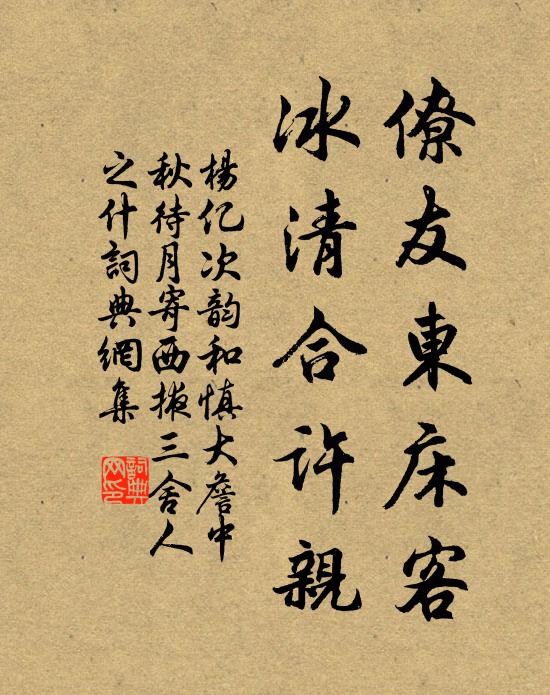 僚友東床客
冰清合許親
楊亿次韵和慎大詹中
秋待月寄西掖三舍人
之什詞典網集
詞典网印